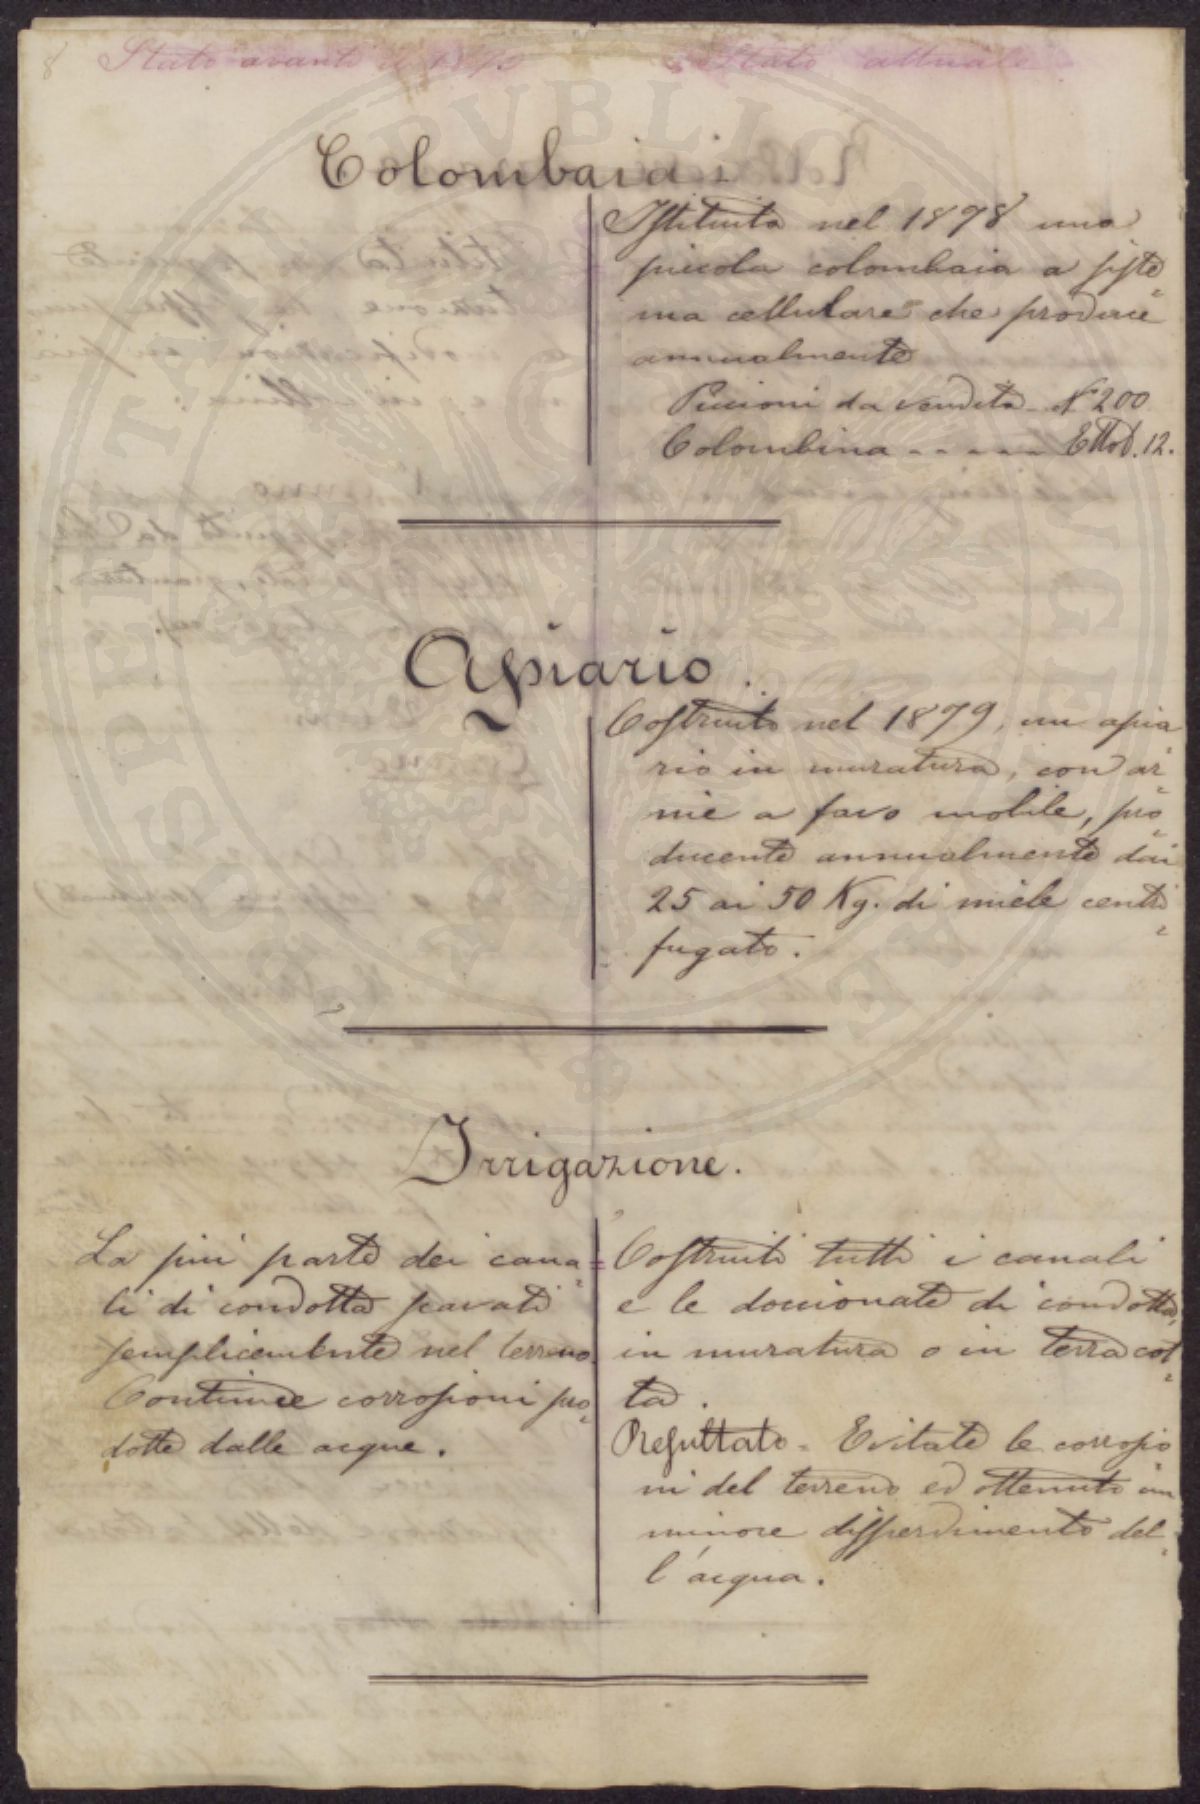 8
Stato avanti il 1870
Stato attuale
Colombaia
Istituita nel 1878 una
piccola colombaia a siste=
ma cellulare che produce
annualmente
Piccioni da vendita N° 200
Colombina - - - - - Ettol. 12.
Apiario.
Costruito nel 1879, un apia
rio in muratura, con ar=
nie a favo mobile, pro=
ducente annualmente dai
25 ai 50 Kg. di miele centri=
fugato.
Irrigazione.
La più parte dei cana=
li di condotta scavati
semplicemente nel terreno.
Continue corrosioni pro=
dotte dalle acque.
Costruiti tutti i canali
e le doccionate di condotta,
in muratura o in terracot=
ta.
Resultato - Evitate le corrosio
ni del terreno ed ottenuto un
minore disperdimento del=
l'acqua.